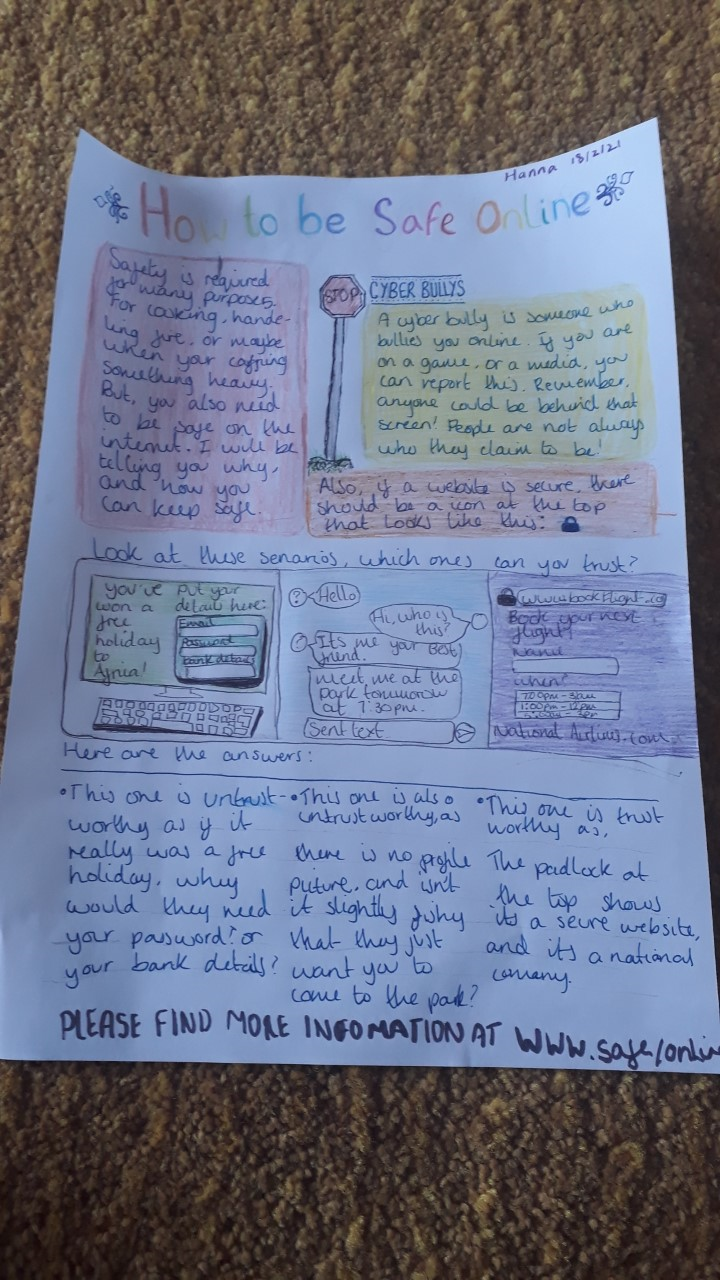 Hanna 18/2/21
How to be Safe Online
Safety is required
for many purposes.
For cooking, hande-
ling fire, or maybe
when your carrying
something heavy.
But, you also need
to be safe on the
internet. I will be
telling you why,
and how you
can keep safe.
STOP
CYBER BULLYS
A cyber bully is someone who
bullies you online. If you are
on a game, or a media, you
can report this. Remember,
anyone could be behind that
screen! People are not always
who they claim to be!
Also, if a website is secure, there
should be a icon at the top
that looks like this:
Look at these senarios, which ones can you trust?
You've
won a
free
holiday
to
Put your
details here:
Email
Password
bank details
?
Hello
Hi, who is
this?
Its me your Best
friend.
meet me at the
park tomorrow
at 7:30pm.
Sent text
Book your next
flight!
Name
when?
National Airlines.com
Here are the answers:
•This one is untrust-
worthy as if it
really was a free
holiday, whey
would they need
your password? or
your bank details?
•This one is also
untrustworthy, as
there is no profile
picture, and isn't
it slightly fishy
that they just
want you to
come to the park?
•This one is trust
worthy as,
The padlock at
the top shows
its a secure website,
and its a national
company.
PLEASE FIND MORE INFOMATION AT www.safe/onlin